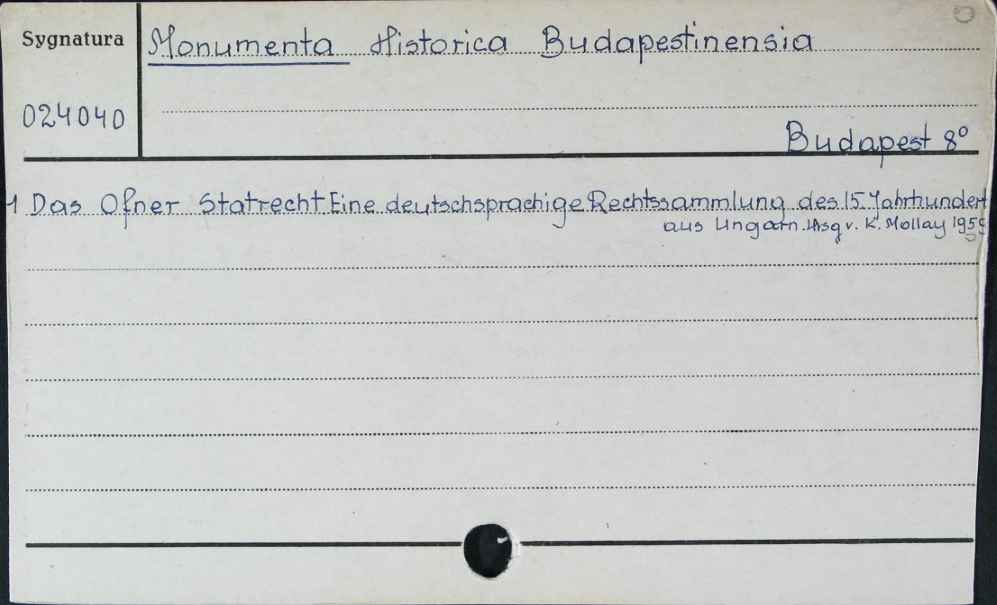 Sygnatura
Monumenta Historica Budapestinensia
024040
Budapest 8°
1 Das Ofner Statrecht Eine deutschsprachige Rechtssammlung des 15. Jahrhundert
aus Ungarn. Hrsg v. K. Mollay 1959